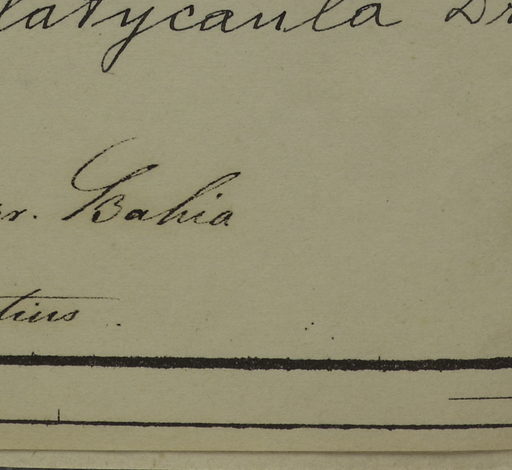 latycaula Dr
r. Bahia
tius